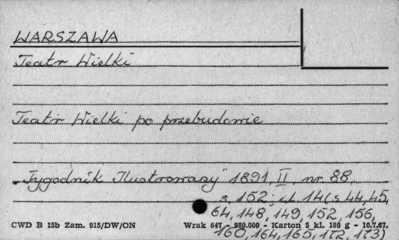 WARSZAWA
Teatr Wielki
Teatr Wielki po przebudowie
"Tygodnik Ilustrowany" 1891, II nr. 88,
s. 152; il. 14 (s 44, 45,
64, 148, 149, 152, 156,
CWD B 15b Zam. 915/DW/ON Wrak 647 980.000 - Karton 5 kl. 180 g - 10.7.67.
160, 164, 165, 172, 173)